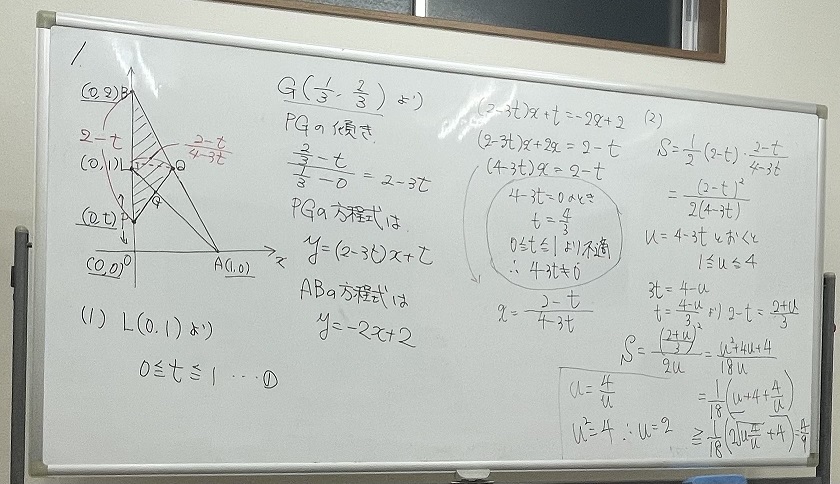 1.
(0,2)B
2-t
(0,1)L
Q
2-t/4-3t
(0,t)P
G
(0,0)O
A(1,0)
x
(1) L(0,1)より
0≦t≦1 …①
G(1/3, 2/3)より
PGの傾き
(2/3-t)/(1/3-0)=2-3t
PGの方程式は
y=(2-3t)x+t
ABの方程式は
y=-2x+2
(2-3t)x+t=-2x+2
(2-3t)x+2x=2-t
(4-3t)x=2-t
4-3t=0のとき
t=4/3
0≦t≦1より不適
∴ 4-3t≠0
x=(2-t)/(4-3t)
(2)
S=1/2(2-t)・(2-t)/(4-3t)
=(2-t)²/2(4-3t)
u=4-3tとおくと
1≦u≦4
3t=4-u
t=(4-u)/3より 2-t=(2+u)/3
S=((2+u)/3)²/2u=(u²+4u+4)/18u
=1/18(u+4+4/u)
≧1/18(2√u・4/u+4)=4/9
u=4/u
u²=4 ∴u=2